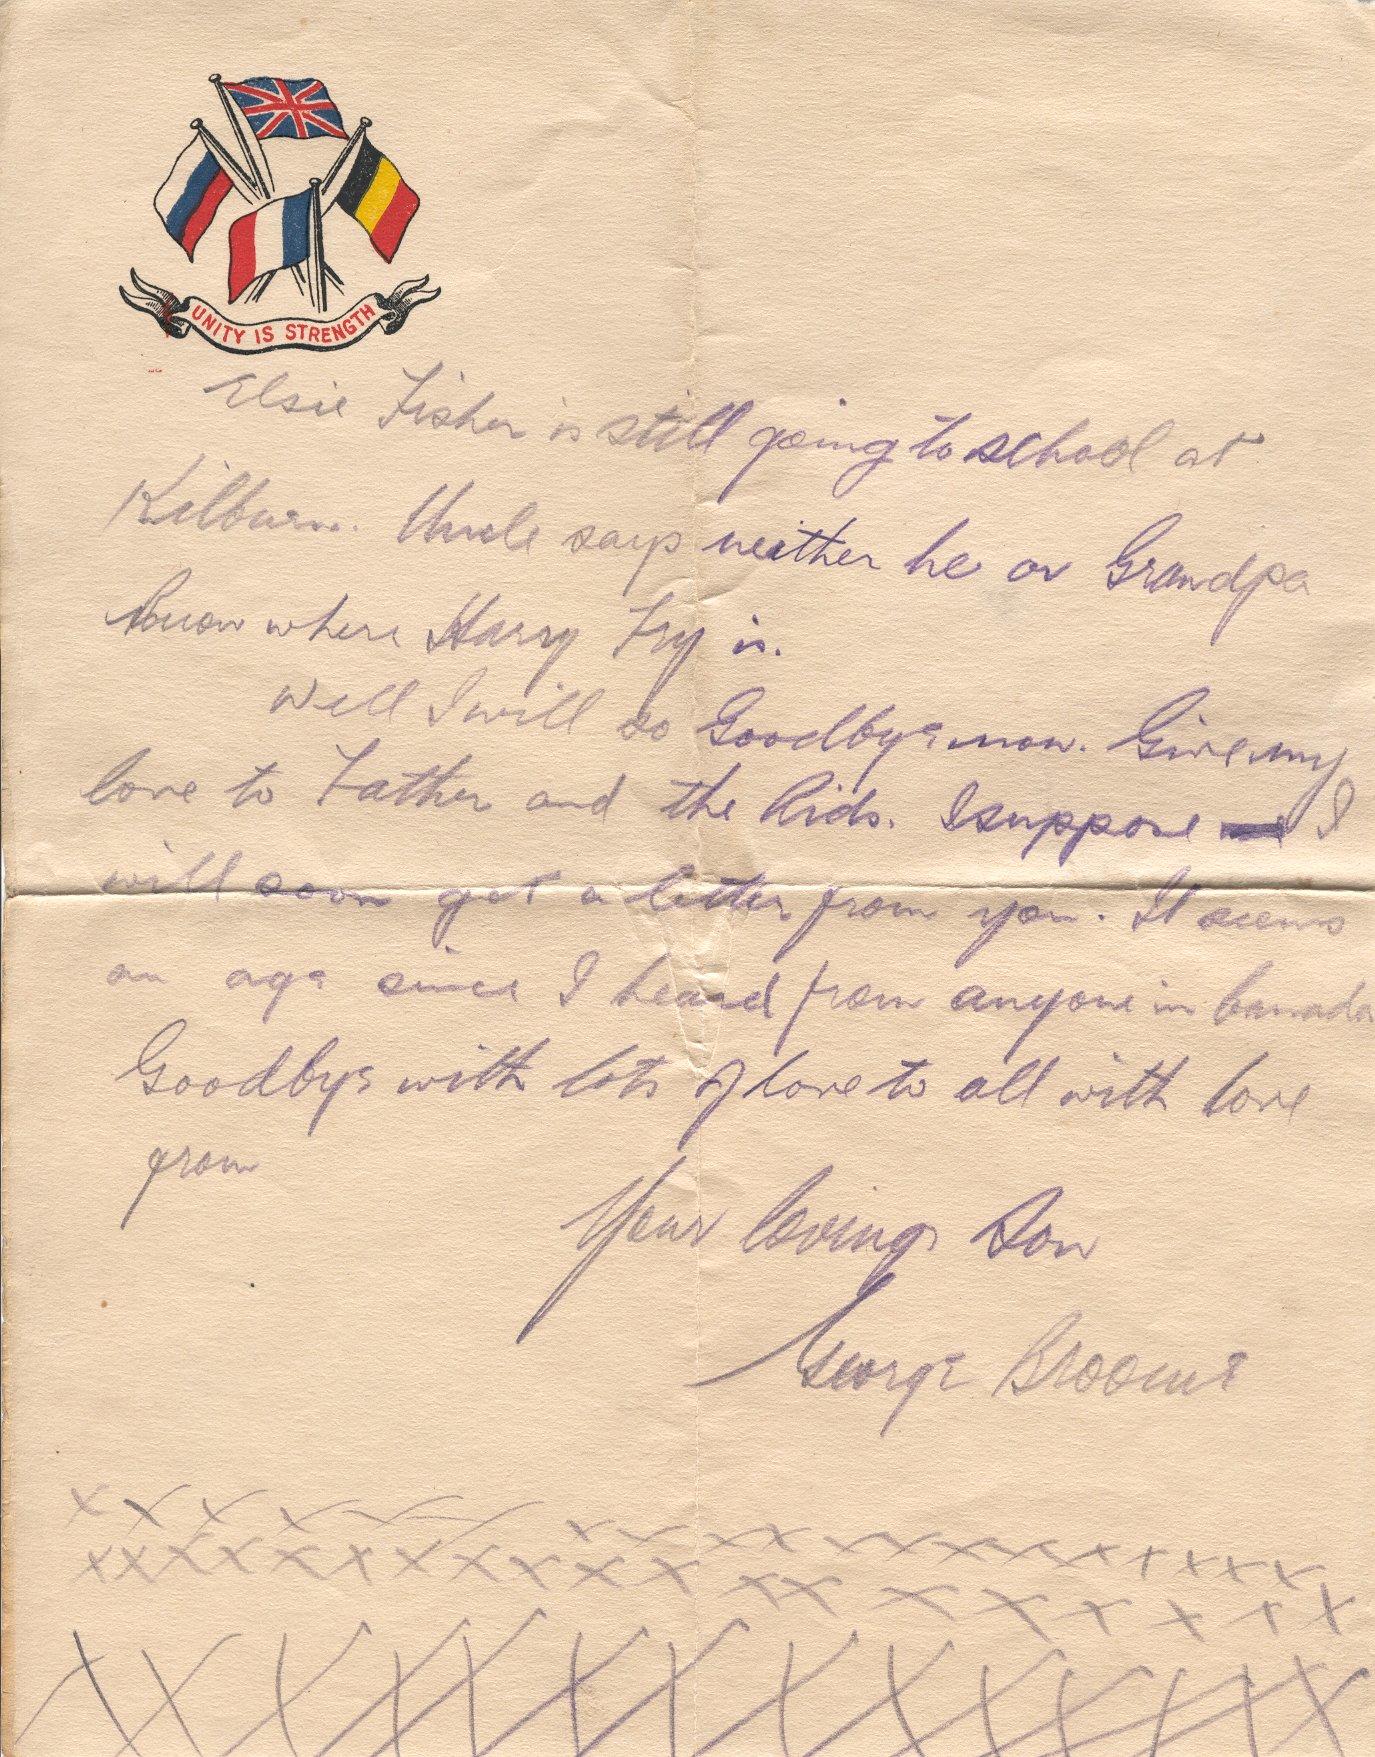 UNITY IS STRENGTH
Elsie Fisher is still going to school at
Kilburn. Uncle says neither he or Grandpa
know where Harry Fry is.
Well I will so Goodbye now. Give my
love to Father and the Kids. I suppose I
will soon get a letter from you. It seems
an age since I heard from anyone in Canada
Goodbye with lots of love to all with love
from
Your loving Son
George Broome
x x x x x x x x x x x x x x x x x
x x x x x x x x x x x x x x x x x x x x
x x x x x x x x x x x x x x